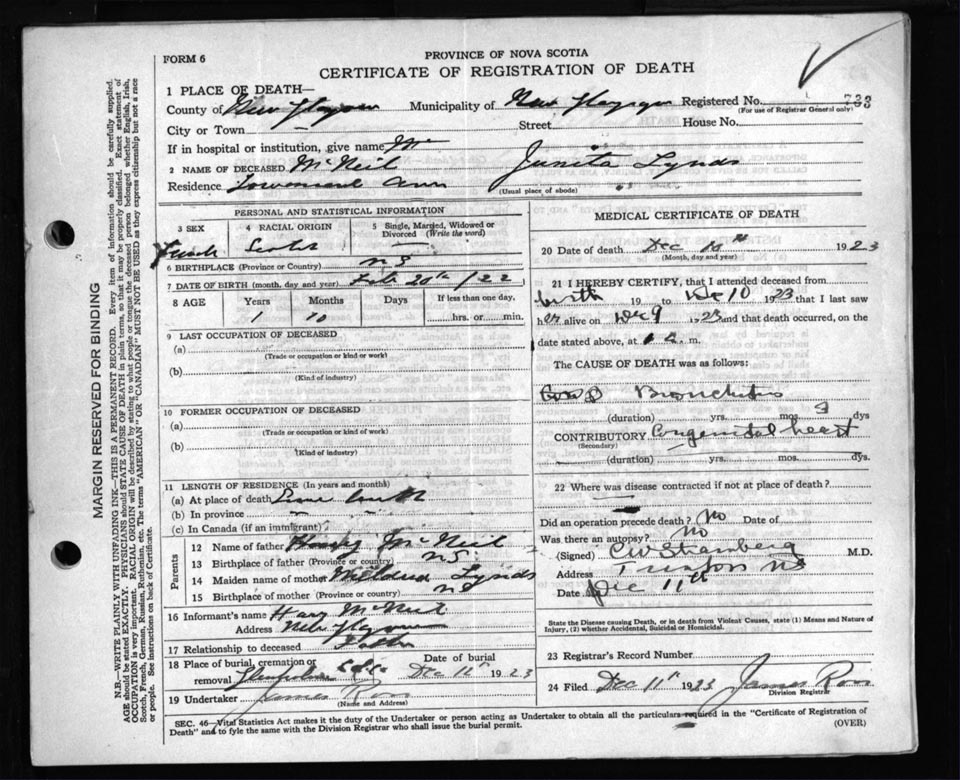 FORM 6
PROVINCE OF NOVA SCOTIA
CERTIFICATE OF REGISTRATION OF DEATH
1 PLACE OF DEATH—
County of New Glasgow Municipality of New Glasgow Registered No. 733
(For use of Registrar General only)
City or Town Street House No.
If in hospital or institution, give name
2 NAME OF DECEASED McNeil Junita Lynds
Residence (Usual place of abode)
PERSONAL AND STATISTICAL INFORMATION
3 SEX 4 RACIAL ORIGIN 5 Single, Married, Widowed or Divorced (Write the word)
Female Scotch
6 BIRTHPLACE (Province or Country) NS
7 DATE OF BIRTH (month, day, and year) Feb 20th /22
8 AGE Years Months Days If less than one day,
1 10 hrs. or min.
9 LAST OCCUPATION OF DECEASED
(a)
(Trade or occupation or kind or work)
(b)
(Kind of industry)
10 FORMER OCCUPATION OF DECEASED
(a)
(Trade or occupation or kind or work)
(b)
(Kind of industry)
11 LENGTH OF RESIDENCE (In years and months)
(a) At place of death Since birth
(b) In province
(c) In Canada (if an immigrant)
Parents
12 Name of father McNeil
13 Birthplace of father (Province or country) NS
14 Maiden name of mother Mildred Lynds
15 Birthplace of mother (Province or country) NS
16 Informant's name McNeil
Address New Glasgow
17 Relationship to deceased Father
18 Place of burial, cremation or removal Date of burial Dec 12th 1923
19 Undertaker James Ross
(Name and Address)
MEDICAL CERTIFICATE OF DEATH
20 Date of death Dec 10th 1923
(Month, day and year)
21 I HEREBY CERTIFY, that I attended deceased from
birth 19 to Dec 10 1923 that I last saw
her alive on Dec 9 1923 and that death occurred, on the
date stated above, at m.
The CAUSE OF DEATH was as follows:
Bronchitis
(duration) yrs. mos. 3 dys
CONTRIBUTORY Congenital heart
(Secondary)
(duration) yrs. mos. dys.
22 Where was disease contracted if not at place of death?
Did an operation precede death? No Date of
Was there an autopsy? No
(Signed) M.D.
Address NS
Date Dec 11th
State the Disease causing Death, or in death from Violent Causes, state (1) Means and Nature of
Injury, (2) whether Accidental, Suicidal or Homicidal.
23 Registrar's Record Number
24 Filed Dec 11th 1923 James Ross
Division Registrar
SEC. 46—Vital Statistics Act makes it the duty of the Undertaker or person acting as Undertaker to obtain all the particulars required in the "Certificate of Registration of
Death" and to fyle the same with the Division Registrar who shall issue the burial permit. (OVER)
MARGIN RESERVED FOR BINDING
N.B.—WRITE PLAINLY WITH UNFADING INK—THIS IS A PERMANENT RECORD. Every item of information should be carefully supplied.
AGE should be stated EXACTLY. PHYSICIANS should STATE CAUSE OF DEATH in plain terms, so that it may be properly classified. Exact statement of
OCCUPATION is very important. RACIAL ORIGIN will be described by stating to what people or tongue the deceased person belonged whether English, Irish,
Scotch, French, German, Russian, Ruthenian, etc. The terms "AMERICAN" OR "CANADIAN" MUST NOT BE USED as they express citizenship but not a race
or people. See instructions on back of Certificate.